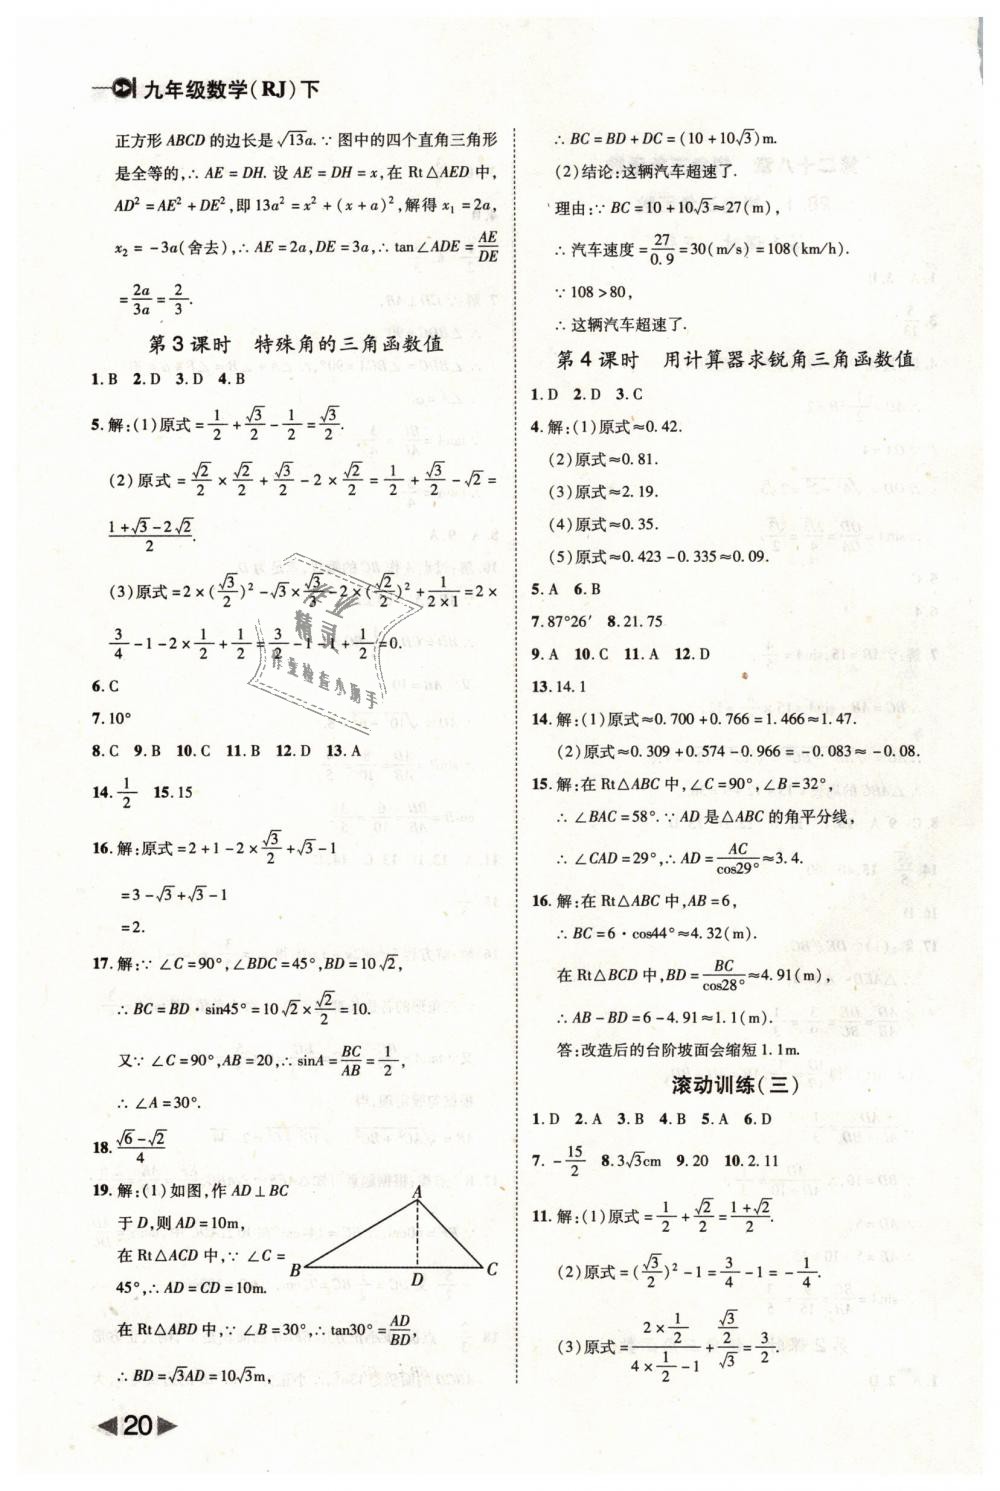 九年级数学(RJ)下
正方形 ABCD 的边长是 √13a. ∵ 图中的四个直角三角形
是全等的,∴ AE = DH. 设 AE = DH = x,在 Rt△AED 中,
AD² = AE² + DE²,即 13a² = x² + (x + a)²,解得 x₁ = 2a,
x₂ = −3a(舍去),∴ AE = 2a,DE = 3a,∴ tan∠ADE = AE/DE
= 2a/3a = 2/3.
第 3 课时 特殊角的三角函数值
1. B 2. D 3. D 4. B
5. 解:(1)原式 = 1/2 + √3/2 − 1/2 = √3/2.
(2)原式 = √2/2 × √2/2 + √3/2 − 2 × √2/2 = 1/2 + √3/2 − √2 =
(1+√3−2√2)/2.
(3)原式 = 2 × (√3/2)² − √3 × √3/3 − 2 × (√2/2)² + 1/(2×1) = 2 ×
3/4 − 1 − 2 × 1/2 + 1/2 = 3/2 − 1 − 1 + 1/2 = 0.
6. C
7. 10°
8. C 9. B 10. C 11. B 12. D 13. A
14. 1/2 15. 15
16. 解:原式 = 2 + 1 − 2 × √3/2 + √3 − 1
= 3 − √3 + √3 − 1
= 2.
17. 解:∵ ∠C = 90°,∠BDC = 45°,BD = 10√2,
∴ BC = BD · sin45° = 10√2 × √2/2 = 10.
又∵ ∠C = 90°,AB = 20,∴ sinA = BC/AB = 1/2,
∴ ∠A = 30°.
18. (√6−√2)/4
19. 解:(1)如图,作 AD⊥BC
于 D,则 AD = 10m,
在 Rt△ACD 中,∵ ∠C =
45°,∴ AD = CD = 10m.
A
B
D
C
在 Rt△ABD 中,∵ ∠B = 30°,∴ tan30° = AD/BD,
∴ BD = √3AD = 10√3m,
∴ BC = BD + DC = (10 + 10√3)m.
(2)结论:这辆汽车超速了.
理由:∵ BC = 10 + 10√3 ≈ 27(m),
∴ 汽车速度 = 27/0.9 = 30(m/s) = 108(km/h).
∵ 108 > 80,
∴ 这辆汽车超速了.
第 4 课时 用计算器求锐角三角函数值
1. D 2. D 3. C
4. 解:(1)原式≈0.42.
(2)原式≈0.81.
(3)原式≈2.19.
(4)原式≈0.35.
(5)原式≈0.423 − 0.335≈0.09.
5. A 6. B
7. 87°26′ 8. 21.75
9. A 10. C 11. A 12. D
13. 14.1
14. 解:(1)原式≈0.700 + 0.766 = 1.466≈1.47.
(2)原式≈0.309 + 0.574 − 0.966 = −0.083≈ −0.08.
15. 解:在 Rt△ABC 中,∠C = 90°,∠B = 32°,
∴ ∠BAC = 58°. ∵ AD 是△ABC 的角平分线,
∴ ∠CAD = 29°,∴ AD = AC/cos29° ≈3.4.
16. 解:在 Rt△ABC 中,AB = 6,
∴ BC = 6 · cos44°≈4.32(m).
在 Rt△BCD 中,BD = BC/cos28° ≈4.91(m),
∴ AB − BD = 6 − 4.91≈1.1(m).
答:改造后的台阶坡面会缩短 1.1m.
滚动训练(三)
1. D 2. A 3. B 4. B 5. A 6. D
7. −15/2 8. 3√3cm 9. 20 10. 2.11
11. 解:(1)原式 = 1/2 + √2/2 = (1+√2)/2.
(2)原式 = (√3/2)² − 1 = 3/4 − 1 = −1/4.
(3)原式 = (2×1/2)/(4×1/2−1) + (√3/2)/√3 = 3/2.
作业
精灵
作业检查小助手
20